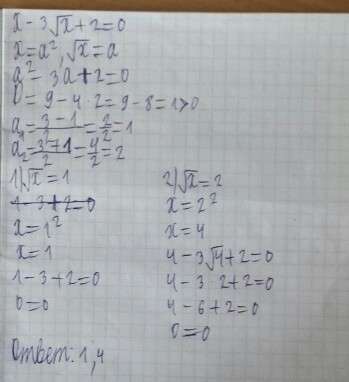 x - 3√x + 2 = 0
x = a², √x = a
a² - 3a + 2 = 0
D = 9 - 4·2 = 9 - 8 = 1 > 0
a₁ = (3 - 1)/2 = 2/2 = 1
a₂ = (3 + 1)/2 = 4/2 = 2
1) √x = 1
1 - 3 + 2 = 0
x = 1²
x = 1
1 - 3 + 2 = 0
0 = 0
2) √x = 2
x = 2²
x = 4
4 - 3√4 + 2 = 0
4 - 3·2 + 2 = 0
4 - 6 + 2 = 0
0 = 0
Ответ: 1, 4